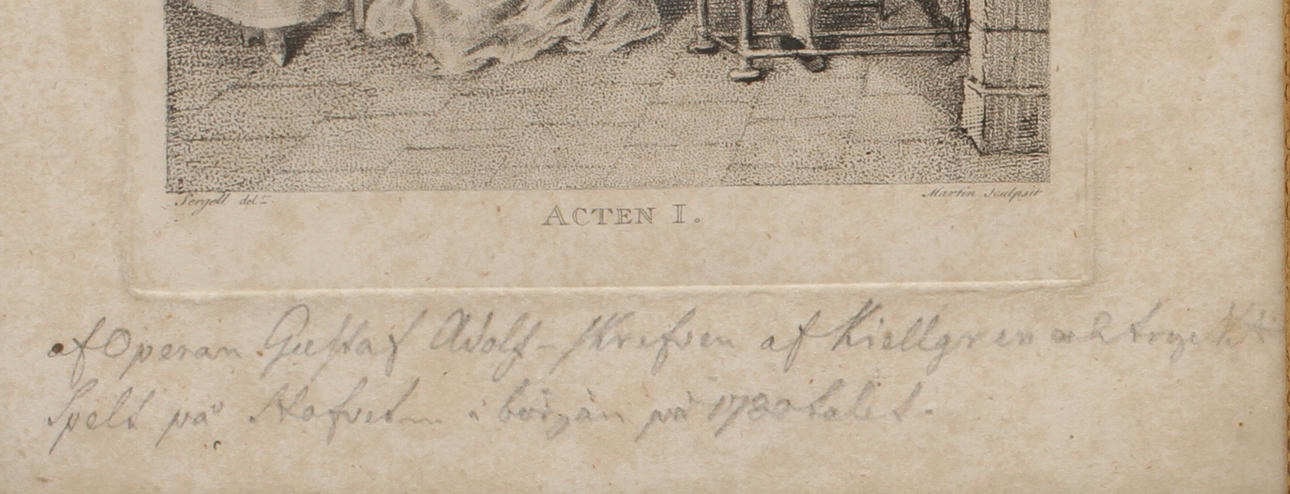 Sergell del.
Martin Sculpsit
ACTEN I.
af Operan Gustaf Adolf- skrefven af Kiellgren och
Spelt på i början på 1780 talet.